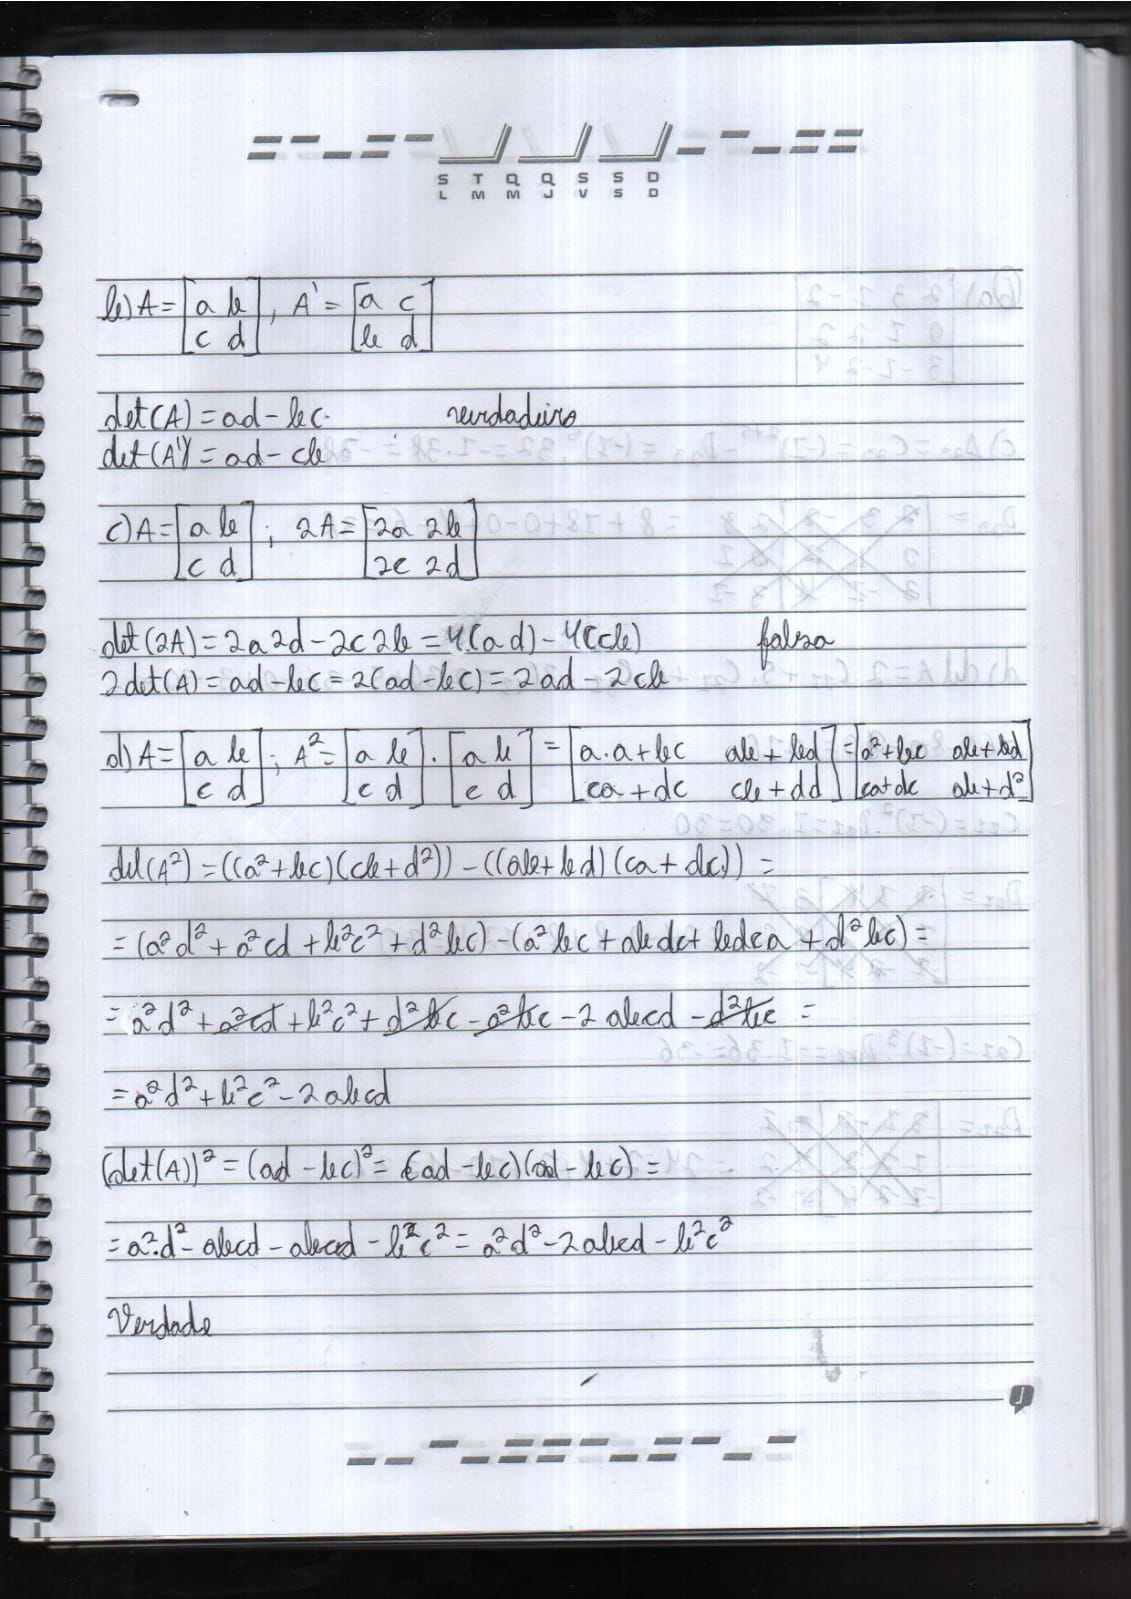 S T Q Q S S D
L M M J V S D
b) A = [a b; c d], A' = [a c; b d]
det(A) = ad - bc. verdadeiro
det(A') = ad - cb
c) A = [a b; c d]; 2A = [2a 2b; 2c 2d]
det(2A) = 2a2d - 2c2b = 4(ad) - 4(cb) falsa
2det(A) = ad - bc = 2(ad - bc) = 2ad - 2cb
d) A = [a b; c d]; A² = [a b; c d] · [a b; c d] = [a.a + bc ab + bd; ca + dc cb + dd] = [a² + bc ab + bd; ca + dc ab + d²]
det(A²) = ((a² + bc)(cb + d²)) - ((ab + bd)(ca + dc)) =
= (a²d² + a²cd + b²c² + d²bc) - (a²bc + abdc + bdca + d²bc) =
= a²d² + a²cd + b²c² + d²bc - a²bc - 2abcd - d²bc =
= a²d² + b²c² - 2abcd
(det(A))² = (ad - bc)² = (ad - bc)(ad - bc) =
= a².d² - abcd - abcd - b²c² = a²d² - 2abcd - b²c²
Verdade